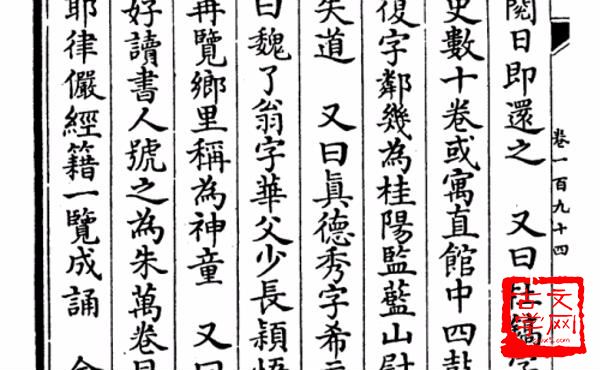 卷一百九十四
閱日即還之　又曰杜鎬字
史數十卷或寓直館中四鼓
復字鄰幾為桂陽監藍山尉
失道　又曰眞德秀字希元
曰魏了翁字華父少長穎悟
再覽鄉里稱為神童　又曰
好讀書人號之為朱萬卷
耶律儼經籍一覽成誦
古文
学网